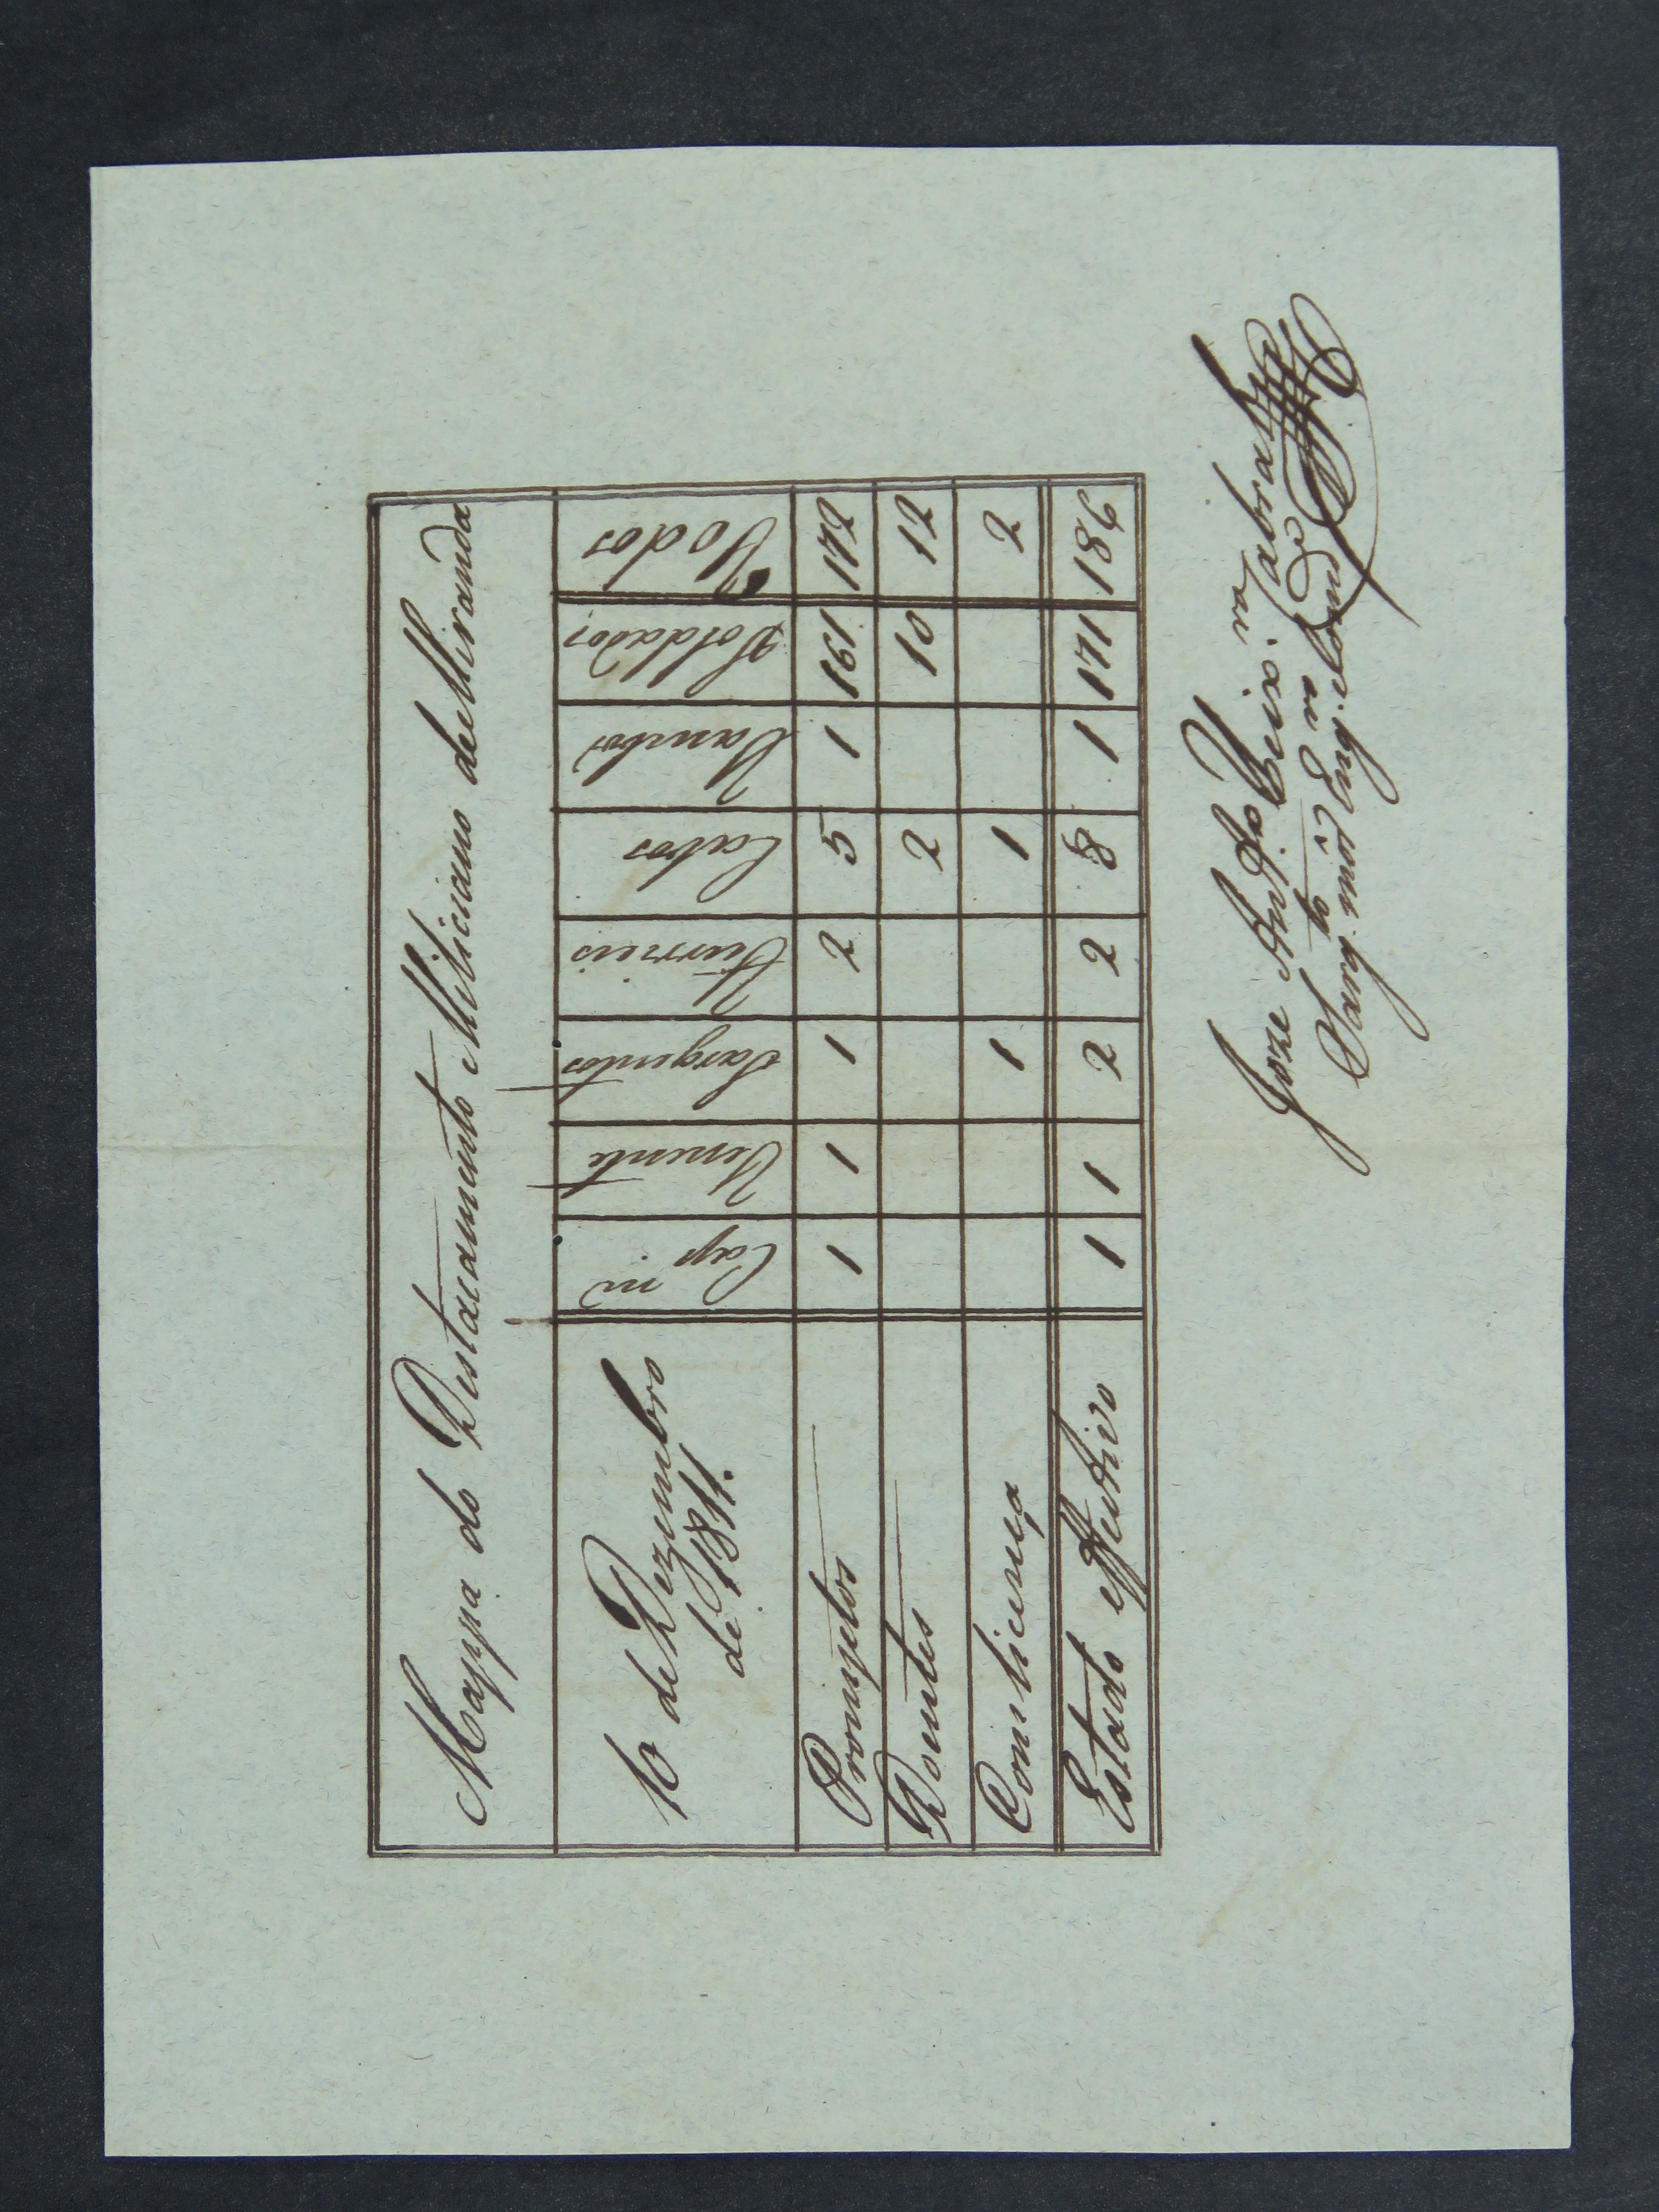 Mappa do Destacamento Miliciano de Miranda
10 de Dezembro
de 1811.
Cap m
Tenente
Sargentos
Furrieis
Cabos
Tambor
Soldados
Todos
Promptos 1 1 1 2 5 1 161 172
Doentes 2 10 12
Com licença 1 1 2
Estado effectivo 1 1 2 2 8 1 171 186
Joze Ant.º Teix.ª